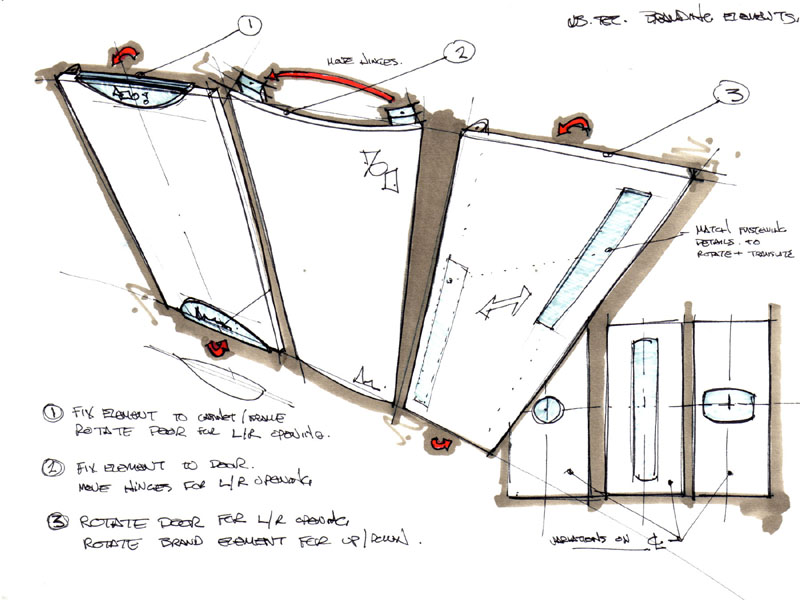 BRANDING ELEMENTS.
1
2
3
MOVE HINGES.
MATCH FASTENING
DETAILS TO
ROTATE + TRANSLATE
① FIX ELEMENT TO CABINET/FRAME
ROTATE DOOR FOR L/R OPENING.
② FIX ELEMENT TO DOOR.
MOVE HINGES FOR L/R OPENING
③ ROTATE DOOR FOR L/R OPENING
ROTATE BRAND ELEMENT FOR UP/DOWN.
VARIATIONS ON ℄